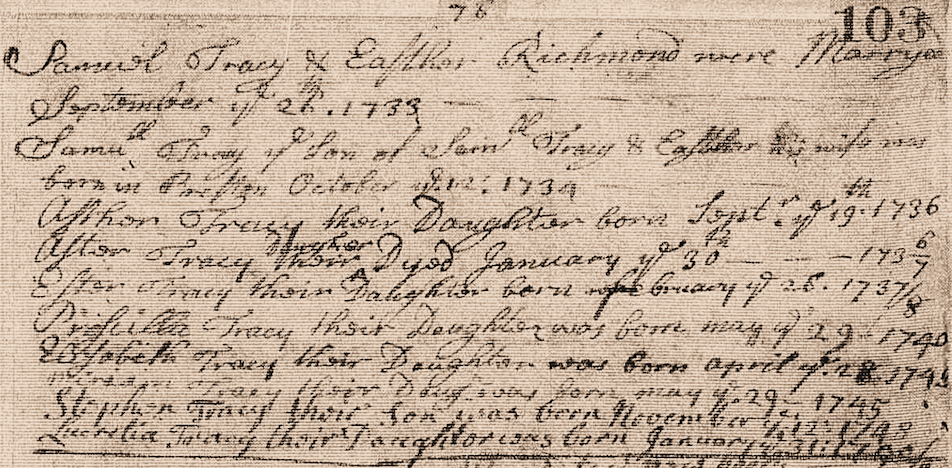 76
103
Samuel Tracy & Easther Richmond were Marryed
September ye 26th. 1733
Samull Tracy ye Son of Samll Tracy & Easther his wife was
born in Preston October ye 12. 1734
Asther Tracy their Daughter born Septr ye 19th. 1736
Aster Tracy their Daugher Dyed January ye 30th 1736/7
Ester Tracy their Daughter born February ye 26. 1737/8
Priscilla Tracy their Daughter was born may ye 29 1740
Elisabeth Tracy their Daughter was born april ye
Tracy their Daug was born may ye 29. 1745
Stephen Tracy their Son was born November ye 12
Tracy their Daughter was born January